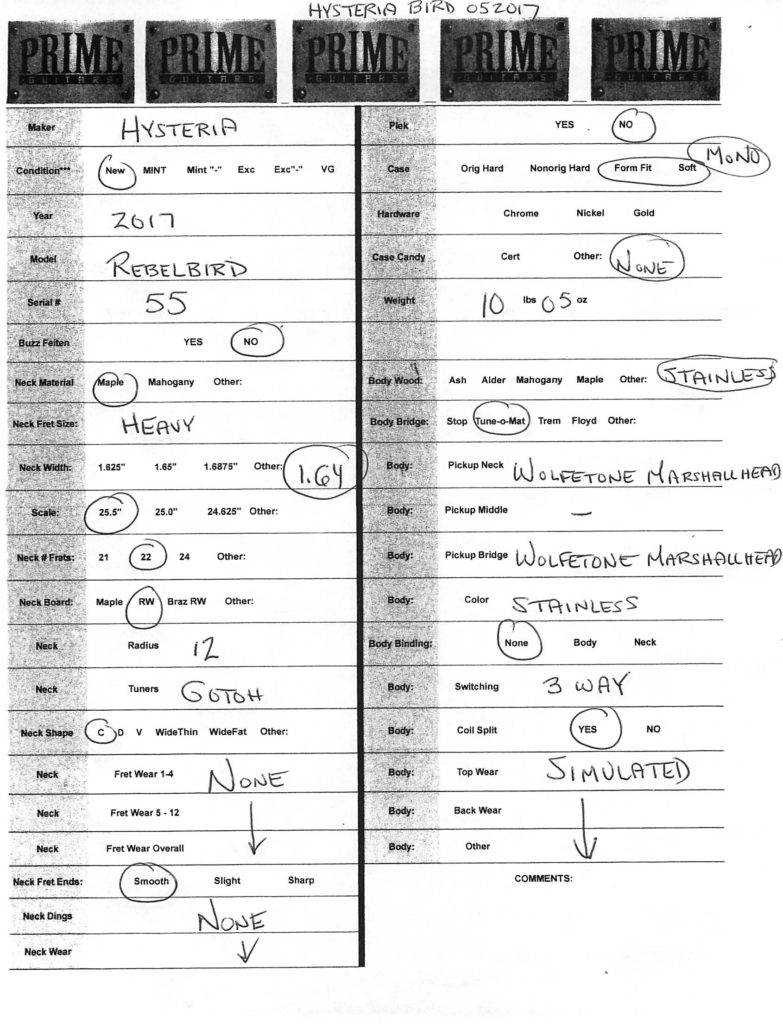 HYSTERIA BIRD 052017
PRIME GUITARS PRIME GUITARS PRIME GUITARS PRIME GUITARS PRIME GUITARS
Maker HYSTERIA
Condition*** New MINT Mint "-" Exc Exc"-" VG
Year 2017
Model REBELBIRD
Serial # 55
Buzz Feiten YES NO
Neck Material Maple Mahogany Other:
Neck Fret Size: HEAVY
Neck Width: 1.625" 1.65" 1.6875" Other: 1.64
Scale: 25.5" 25.0" 24.625" Other:
Neck # Frets: 21 22 24 Other:
Neck Board: Maple RW Braz RW Other:
Neck Radius 12
Neck Tuners GOTOH
Neck Shape C D V WideThin WideFat Other:
Neck Fret Wear 1-4 NONE
Neck Fret Wear 5 - 12
Neck Fret Wear Overall
Neck Fret Ends: Smooth Slight Sharp
Neck Dings NONE
Neck Wear
Plek YES NO
Case Orig Hard Nonorig Hard Form Fit Soft MONO
Hardware Chrome Nickel Gold
Case Candy Cert Other: NONE
Weight 10 lbs 05 oz
Body Wood: Ash Alder Mahogany Maple Other: STAINLESS
Body Bridge: Stop Tune-o-Mat Trem Floyd Other:
Body: Pickup Neck WOLFETONE MARSHALLHEAD
Body: Pickup Middle —
Body: Pickup Bridge WOLFETONE MARSHALLHEAD
Body: Color STAINLESS
Body Binding: None Body Neck
Body: Switching 3 WAY
Body: Coil Split YES NO
Body: Top Wear SIMULATED
Body: Back Wear
Body: Other
COMMENTS: